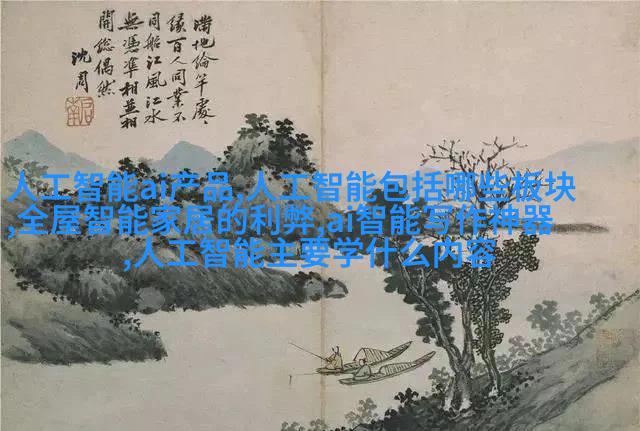 滿地綸竿處、
緣百人同業不
同船江風江水
無憑準相並相
開總偶然
沈周
人工智能ai产品,人工智能包括哪些板块
,全屋智能家居的利弊,ai智能写作神器
,人工智能主要学什么内容